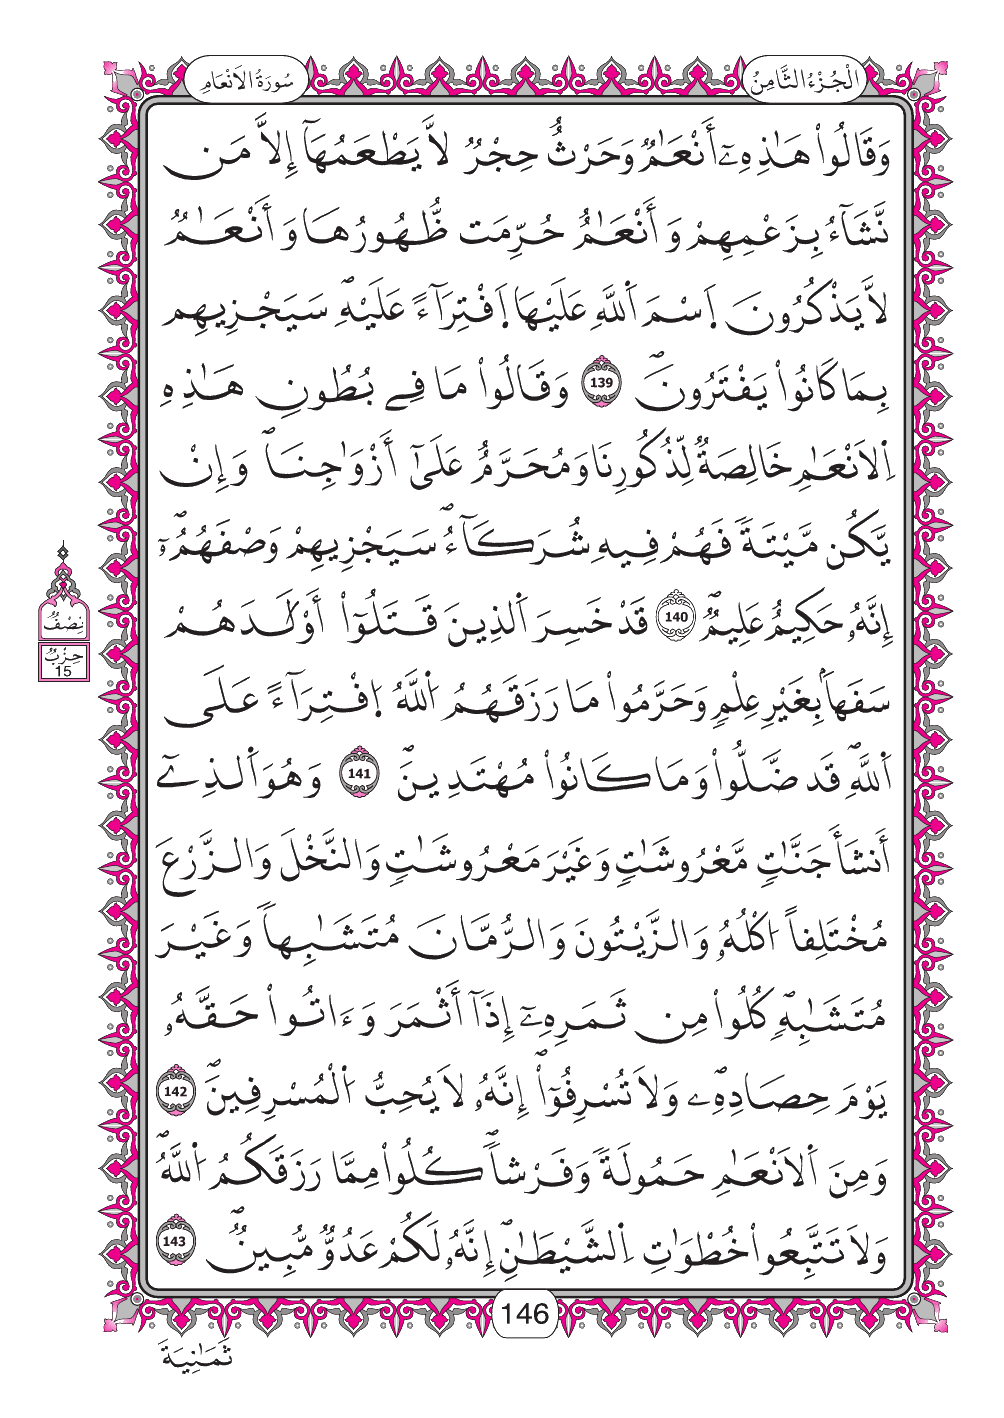 الْجُزْءُ الثَّامِنُ
سُورَةُ الَانْعَامِ
وَقَالُواْ هَٰذِهِۦٓ أَنْعَٰمٌ وَحَرْثٌ حِجْرٌ لَّا يَطْعَمُهَآ إِلَّا مَن
نَّشَآءُ بِزَعْمِهِمْ وَأَنْعَٰمٌ حُرِّمَت ظُّهُورُهَا وَأَنْعَٰمٌ
لَّا يَذْكُرُونَ اَسْمَ اَللَّهِ عَلَيْهَا اَفْتِرَآءً عَلَيْهِۖ سَيَجْزِيهِم
بِمَا كَانُواْ يَفْتَرُونَۖ 139 وَقَالُواْ مَا فِے بُطُونِ هَٰذِهِ
اِلَانْعَٰمِ خَالِصَةٌ لِّذُكُورِنَا وَمُحَرَّمٌ عَلَىٰٓ أَزْوَٰجِنَاۖ وَإِنْ
يَّكُن مَّيْتَةً فَهُمْ فِيهِ شُرَكَآءُۖ سَيَجْزِيهِمْ وَصْفَهُمُۥٓۖ
إِنَّهُۥ حَكِيمٌ عَلِيمٌۖ 140 قَدْ خَسِرَ اَلذِينَ قَتَلُوٓاْ أَوْلَٰدَهُمْ
سَفَهاَۢ بِغَيْرِ عِلْمٍ وَحَرَّمُواْ مَا رَزَقَهُمُ اُللَّهُ اُفْتِرَآءً عَلَى
اَللَّهِۖ قَد ضَّلُّواْ وَمَا كَانُواْ مُهْتَدِينَۖ 141 وَهُوَ اَلذِےٓ
أَنشَأَ جَنَّٰتٍ مَّعْرُوشَٰتٍ وَغَيْرَ مَعْرُوشَٰتٍ وَالنَّخْلَ وَالزَّرْعَ
مُخْتَلِفاً اكْلُهُۥ وَالزَّيْتُونَ وَالرُّمَّانَ مُتَشَٰبِهاً وَغَيْرَ
مُتَشَٰبِهٍۖ كُلُواْ مِن ثَمَرِهِۦٓ إِذَآ أَثْمَرَ وَءَاتُواْ حَقَّهُۥ
يَوْمَ حِصَادِهِۦۖ وَلَا تُسْرِفُوٓاْۖ إِنَّهُۥ لَا يُحِبُّ اُلْمُسْرِفِينَۖ 142
وَمِنَ اَلَانْعَٰمِ حَمُولَةً وَفَرْشاًۖ كُلُواْ مِمَّا رَزَقَكُمُ اُللَّهُۖ
وَلَا تَتَّبِعُواْ خُطْوَٰتِ اِلشَّيْطَٰنِۖ إِنَّهُۥ لَكُمْ عَدُوٌّ مُّبِينٌۖ 143
نِصْفُ
حِزْبٌ
15
146
ثَمَٰنِيَةَ